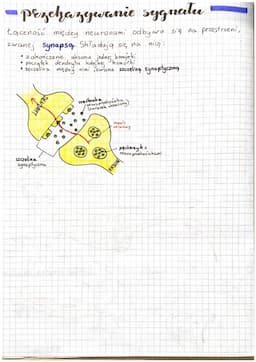 przekazywanie sygnału
Łączność między neuronami odbywa się na przestrzeni,
zwanej synapsą. Składają się na nią:
• zakończenie aksonu jednej komórki
• początek dendrytu kolejnej komórki
• szczelina między nimi, zwana szczeliną synaptyczną
szczelina
synaptyczna
pęcherzyki z
neuroprzekaźnikami